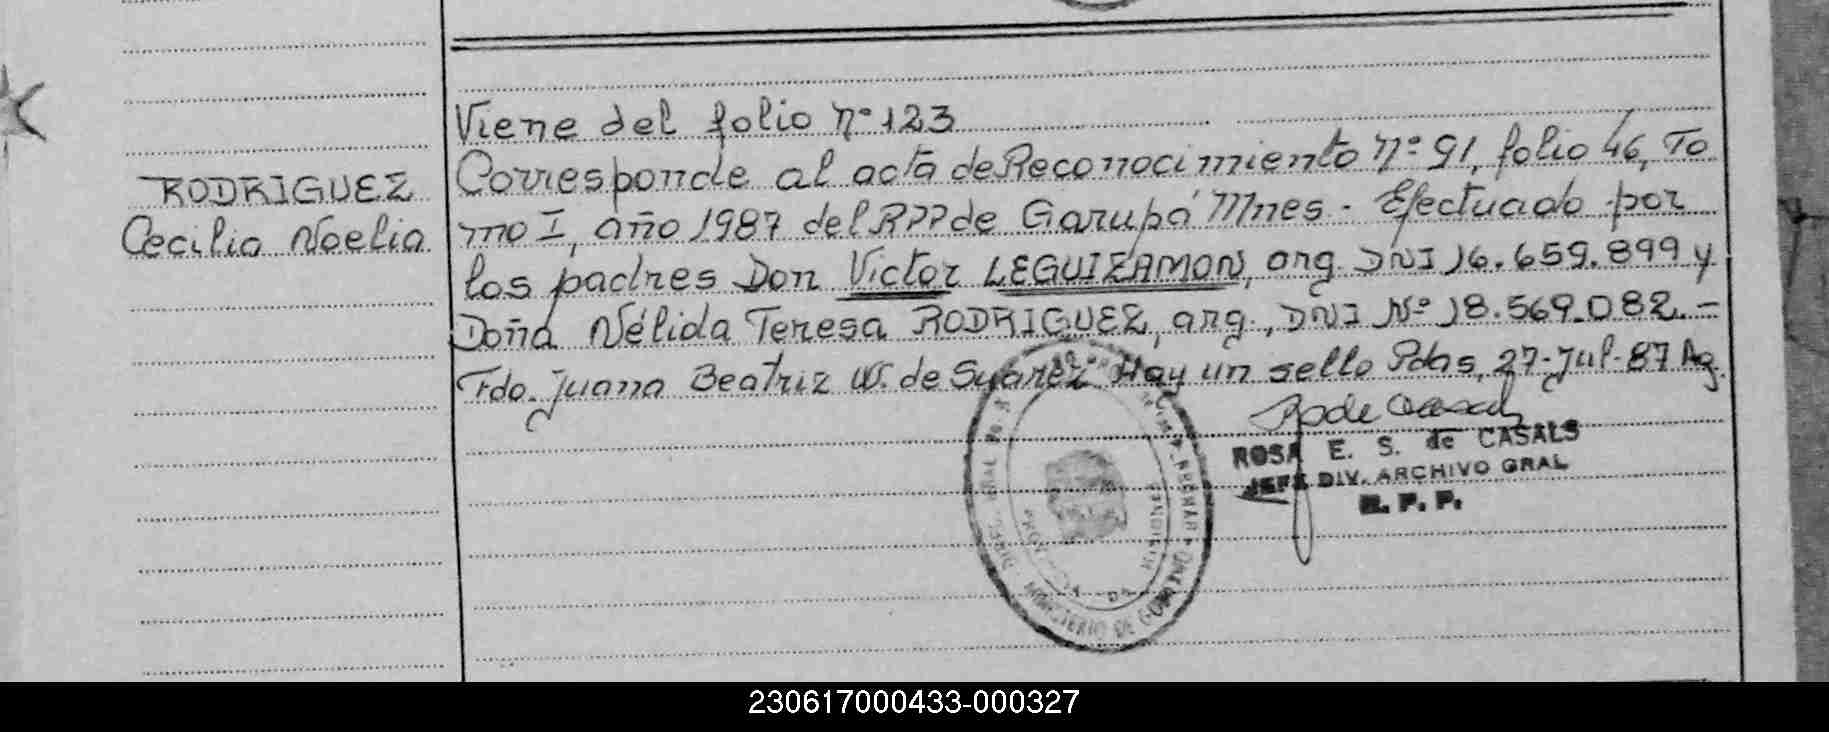 Viene del folio nº 123
RODRIGUEZ
Cecilia Noelia
Corresponde al acta de Reconocimiento nº 91, folio 46, To
mo I, año 1987 del RPP de Garupá Mnes - Efectuado por
los padres Don Victor LEGUIZAMON, arg. DNI 16.659.899 y
Doña Nélida Teresa RODRIGUEZ, arg., DNI Nº 18.569.082.-
Fdo. Juana Beatriz W. de Suárez Hay un sello Pdas, 27-Jul-87 Ag
ROSA E. S. de CASALS
JEFE DIV. ARCHIVO GRAL
R. P. P.
MINISTERIO DE
230617000433-000327